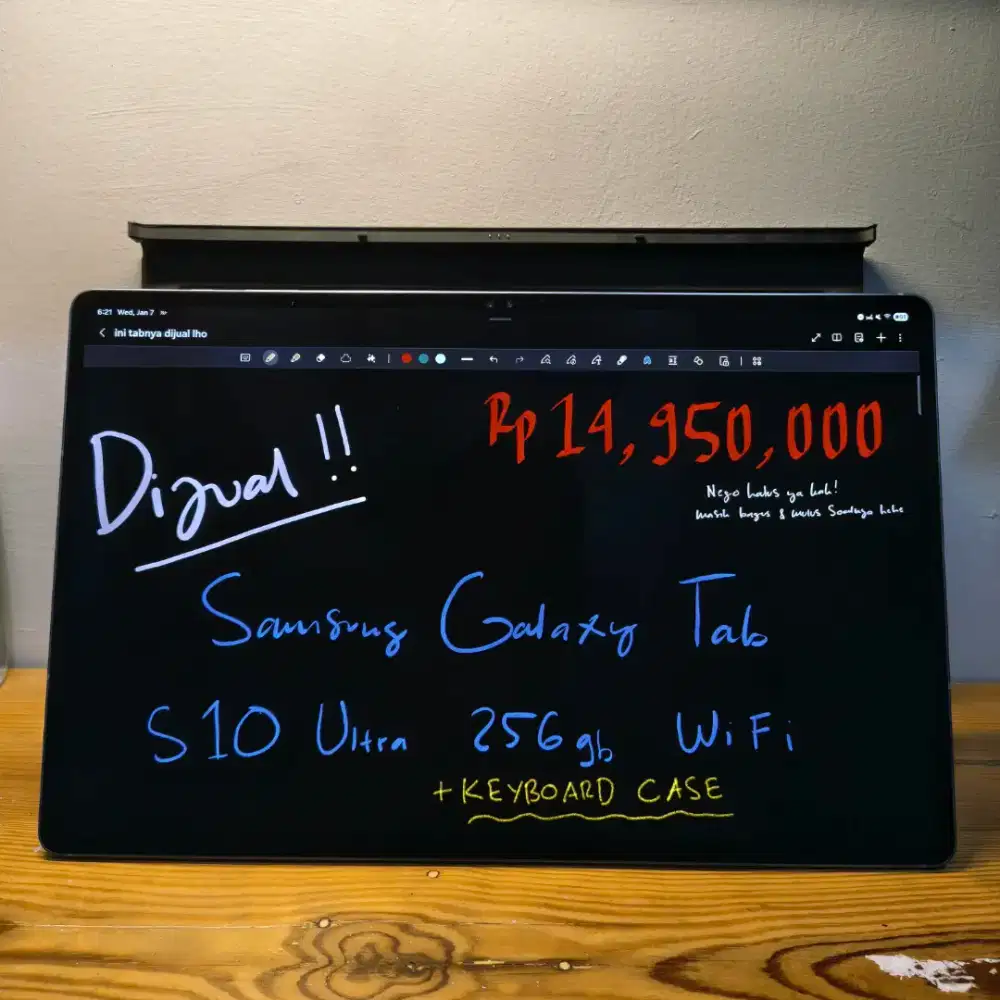 6:21 Wed, Jan 7
ini tabnya dijual lho
Dijual !!
Rp 14,950,000
Nego halus ya kak!
masih bagus & mulus Soalnya hehe
Samsung Galaxy Tab
S10 Ultra 256gb WiFi
+ KEYBOARD CASE